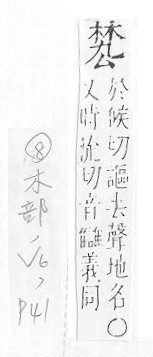 於候切謳去聲地名〇
又時流切音讎義同
⑧木部, V6, P41